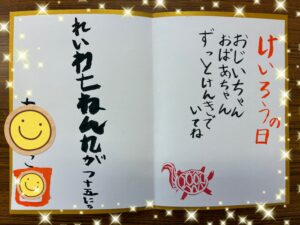 けいろうの日
おじいちゃん
おばあちゃん
ずっとげんきで
いてね
れいわ七ねん九がつ十五にち